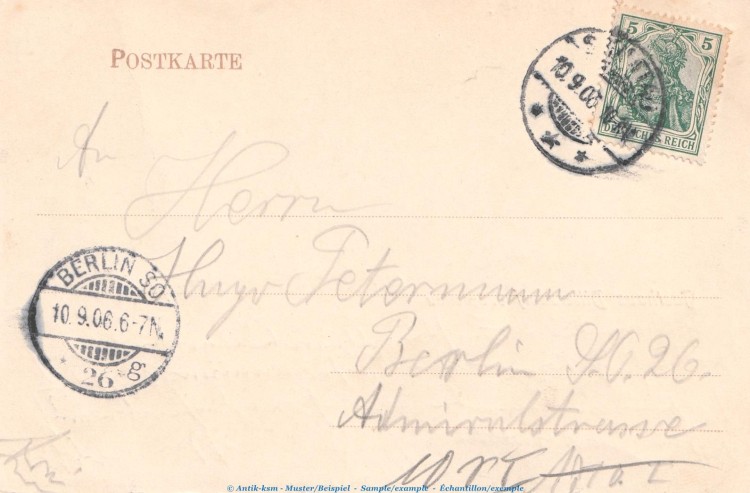 POSTKARTE
5 5
DEUTSCHES REICH
10.9.06.
An
Herrn
Hugo Petermann
Berlin S.O. 26.
Admiralstrasse
BERLIN SO
10.9.06.6-7N.
* 26 g
© Antik-ksm - Muster/Beispiel - Sample/example - Échantillon/exemple